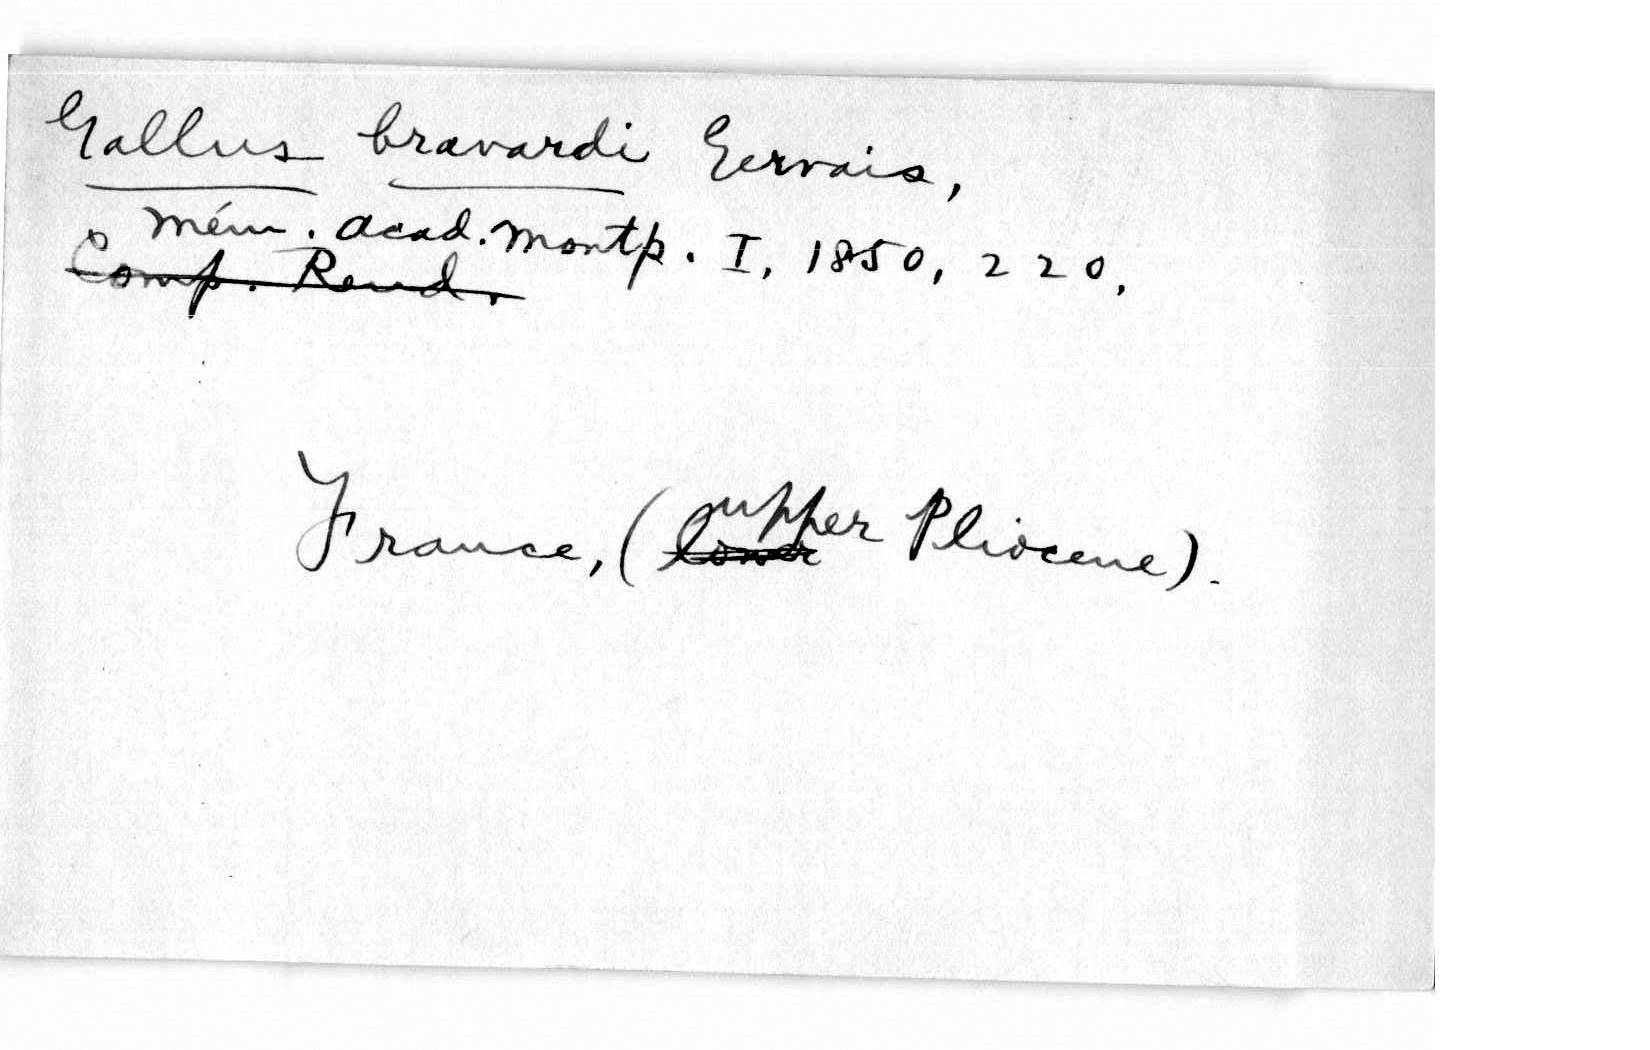 Gallus bravardi Gervais,
Mém. Acad. Montp. I, 1850, 220.
Comp. Rend.
France, (lower upper Pliocene).